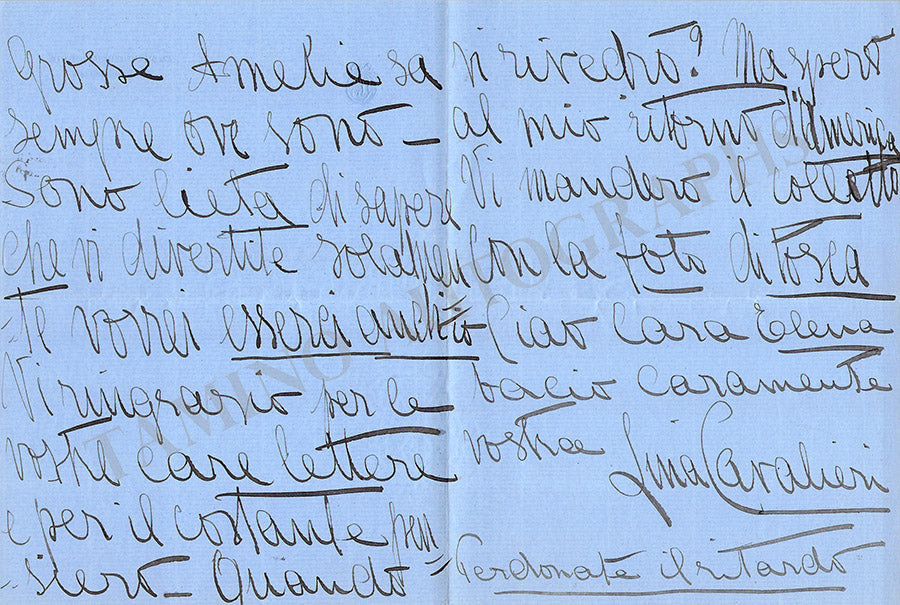 Grosse Amelie sa
sempre ove sono –
Sono lieta di sapere
che vi divertite solamen
-te vorrei esserci anch'io
Vi ringrazio per le
vostre care lettere
e per il costante pen
-siero – Quando
vi rivedrò? Ma spero
al mio ritorno d'America
Vi manderò il
con la foto di Tosca
Ciao Cara Elena
bacio caramente
vostra
Lina Cavalieri
Perdonate il ritardo
TAMINO AUTOGRAPHS